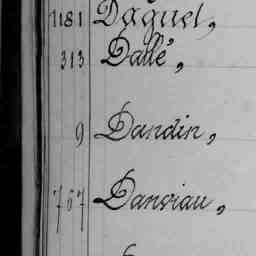 1181 Daguet,
313 Dallé,
9 Dandin,
767 Dansiau,